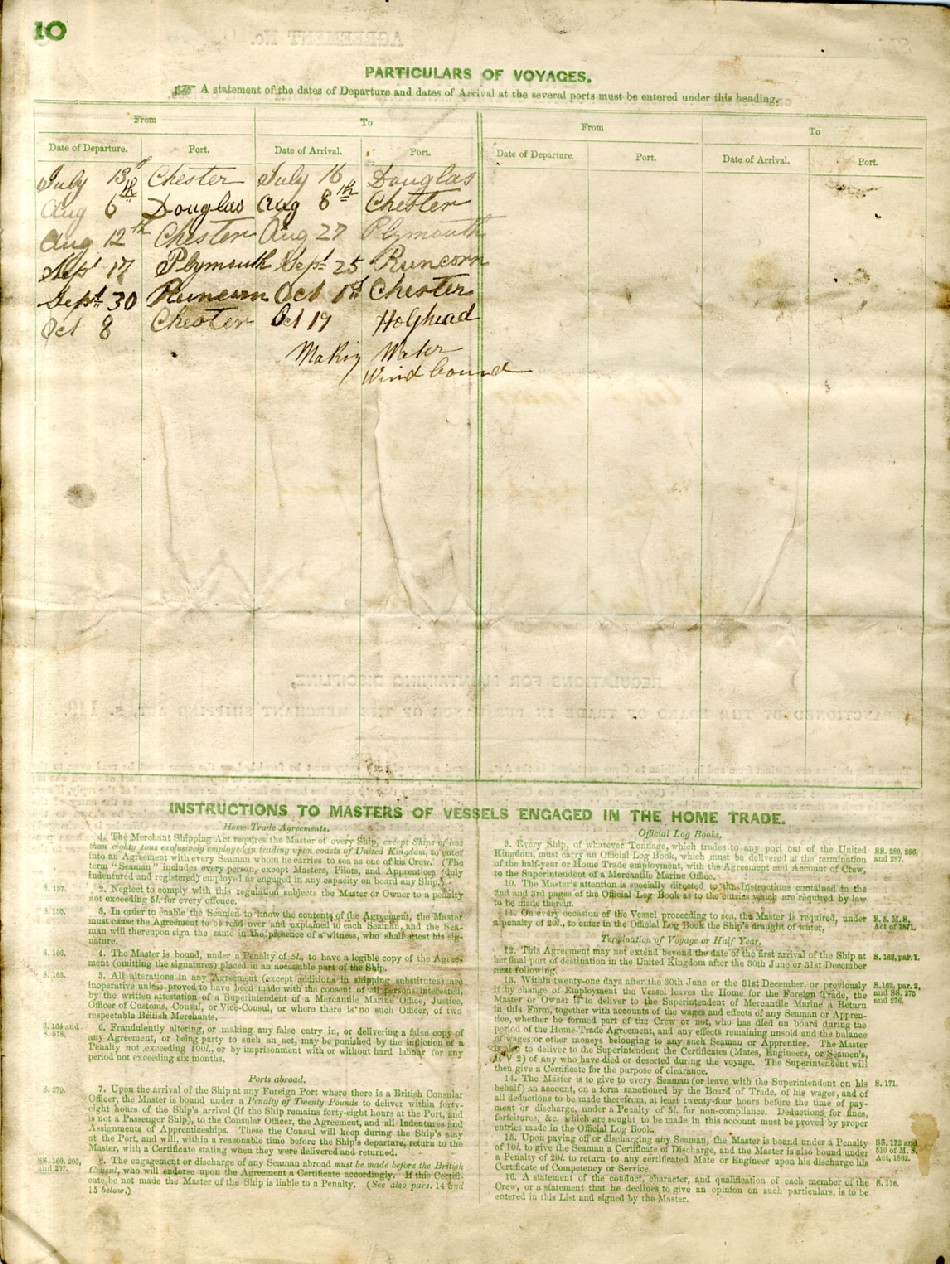 10
PARTICULARS OF VOYAGES.
A statement of the dates of Departure and dates of Arrival at the several ports must be entered under this heading.
From To From To
Date of Departure. Port. Date of Arrival. Port. Date of Departure. Port. Date of Arrival. Port.
July 13 Chester July 16 Douglas
Aug 6th Douglas Aug 8th Chester
Aug 12th Chester Aug 27 Plymouth
Sept 17 Plymouth Sept 25 Runcorn
Sept 30 Runcorn Oct 1st Chester
Oct 8 Chester Oct 19 Holyhead
Making Water
Wind bound
INSTRUCTIONS TO MASTERS OF VESSELS ENGAGED IN THE HOME TRADE.
Home Trade Agreements.
1. The Merchant Shipping Act requires the Master of every Ship, except Ships of less
than eighty tons exclusively employed in trading upon coasts of United Kingdom, to enter
into an Agreement with every Seaman whom he carries to sea as one of his Crew. (The
term "Seaman" includes every person, except Masters, Pilots, and Apprentices duly
indentured and registered, employed or engaged in any capacity on board any Ship.)
2. Neglect to comply with this regulation subjects the Master or Owner to a penalty
not exceeding 5l. for every offence.
3. In order to enable the Seamen to know the contents of the Agreement, the Master
must cause the Agreement to be read over and explained to each Seaman, and the Sea-
man will thereupon sign the same in the presence of a witness, who shall attest his sig-
nature.
4. The Master is bound, under a Penalty of 5l., to have a legible copy of the Agree-
ment (omitting the signatures) placed in an accessible part of the Ship.
5. All alterations in any Agreement (except additions in shipping substitutes) are
inoperative unless proved to have been made with the consent of all persons interested,
by the written attestation of a Superintendent of a Mercantile Marine Office, Justice,
Officer of Customs, Consul, or Vice-Consul, or where there is no such Officer, of two
respectable British Merchants.
6. Fraudulently altering, or making any false entry in, or delivering a false copy of
any Agreement, or being party to such an act, may be punished by the infliction of a
Penalty not exceeding 100l., or by imprisonment with or without hard labour for any
period not exceeding six months.
Ports abroad.
S. 279. 7. Upon the arrival of the Ship at any Foreign Port where there is a British Consular
Officer, the Master is bound under a Penalty of Twenty Pounds to deliver within forty-
eight hours of the Ship's arrival (if the Ship remains forty-eight hours at the Port, and
is not a Passenger Ship), to the Consular Officer, the Agreement, and all Indentures and
Assignments of Apprenticeships. These the Consul will keep during the Ship's stay
at the Port, and will, within a reasonable time before the Ship's departure, return to the
Master, with a Certificate stating when they were delivered and returned.
8. The engagement or discharge of any Seaman abroad must be made before the British
Consul, who will endorse upon the Agreement a Certificate accordingly. If this Certifi-
cate be not made the Master of the Ship is liable to a Penalty. (See also pars. 14 and
15 below.)
Official Log Books.
9. Every Ship, of whatever Tonnage, which trades to any port out of the United
Kingdom, must carry an Official Log Book, which must be delivered at the termination
of the half-year or Home Trade employment, with the Agreement and Account of Crew,
to the Superintendent of a Mercantile Marine Office.
10. The Master's attention is specially directed to the Instructions contained in the
2nd and 3rd pages of the Official Log Book as to the entries which are required by law
to be made therein.
11. On every occasion of the Vessel proceeding to sea, the Master is required, under
a penalty of 20l., to enter in the Official Log Book the Ship's draught of water.
Termination of Voyage or Half Year.
12. This Agreement may not extend beyond the date of the first arrival of the Ship at S. 162, par. 1.
her final port of destination in the United Kingdom after the 30th June or 31st December
next following.
13. Within twenty-one days after the 30th June or the 31st December, or previously
if by change of Employment the Vessel leaves the Home for the Foreign Trade, the
Master or Owner is to deliver to the Superintendent of Mercantile Marine a Return
in this Form, together with accounts of the wages and effects of any Seaman or Appren-
tice, whether he formed part of the Crew or not, who has died on board during the
period of the Home Trade Agreement, and any effects remaining unsold and the balance
of wages or other moneys belonging to any such Seaman or Apprentice. The Master
to deliver to the Superintendent the Certificates (Mates, Engineers, or Seamen's,
) of any who have died or deserted during the voyage. The Superintendent will
then give a Certificate for the purpose of clearance.
14. The Master is to give to every Seaman (or leave with the Superintendent on his S. 171.
behalf) an account, on a form sanctioned by the Board of Trade, of his wages, and of
all deductions to be made therefrom, at least twenty-four hours before the time of pay-
ment or discharge, under a Penalty of 5l. for non-compliance. Deductions for fines,
forfeitures, &c. which are sought to be made in this account must be proved by proper
entries made in the Official Log Book.
15. Upon paying off or discharging any Seaman, the Master is bound under a Penalty
of 10l. to give the Seaman a Certificate of Discharge, and the Master is also bound under
a Penalty of 20l. to return to any certificated Mate or Engineer upon his discharge his
Certificate of Competency or Service.
16. A statement of the conduct, character, and qualification of each member of the
Crew, or a statement that he declines to give an opinion on such particulars, is to be
entered in this List and signed by the Master.